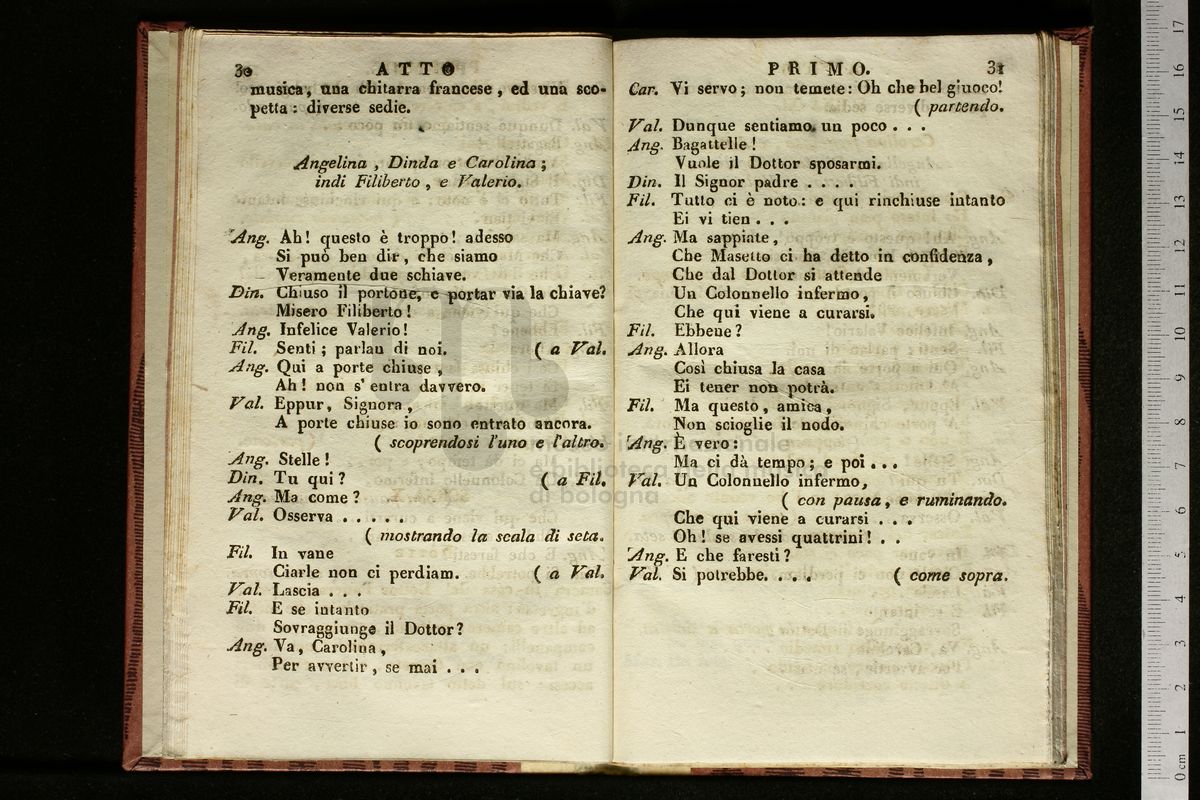 30 ATTO
musica, una chitarra francese, ed una sco-
petta: diverse sedie.
Angelina, Dinda e Carolina;
indi Filiberto, e Valerio.
Ang. Ah! questo è troppo! adesso
Si può ben dir, che siamo
Veramente due schiave.
Din. Chiuso il portone, e portar via la chiave?
Misero Filiberto!
Ang. Infelice Valerio!
Fil. Senti; parlan di noi. ( a Val.
Ang. Qui a porte chiuse,
Ah! non s' entra davvero.
Val. Eppur, Signora,
A porte chiuse io sono entrato ancora.
( scoprendosi l'uno e l'altro.
Ang. Stelle!
Din. Tu qui? ( a Fil.
Ang. Ma come?
Val. Osserva . . . . .
( mostrando la scala di seta.
Fil. In vane
Ciarle non ci perdiam. ( a Val.
Val. Lascia . . .
Fil. E se intanto
Sovraggiunge il Dottor?
Ang. Va, Carolina,
Per avvertir, se mai . . .
PRIMO. 31
Car. Vi servo; non temete: Oh che bel giuoco!
( partendo.
Val. Dunque sentiamo un poco . . .
Ang. Bagattelle!
Vuole il Dottor sposarmi.
Din. Il Signor padre . . . .
Fil. Tutto ci è noto: e qui rinchiuse intanto
Ei vi tien . . .
Ang. Ma sappiate,
Che Masetto ci ha detto in confidenza,
Che dal Dottor si attende
Un Colonnello infermo,
Che qui viene a curarsi.
Fil. Ebbene?
Ang. Allora
Così chiusa la casa
Ei tener non potrà.
Fil. Ma questo, amica,
Non scioglie il nodo.
Ang. È vero:
Ma ci dà tempo; e poi . . .
Val. Un Colonnello infermo,
( con pausa, e ruminando.
Che qui viene a curarsi . . .
Oh! se avessi quattrini! . .
Ang. E che faresti?
Val. Si potrebbe. . . . ( come sopra.